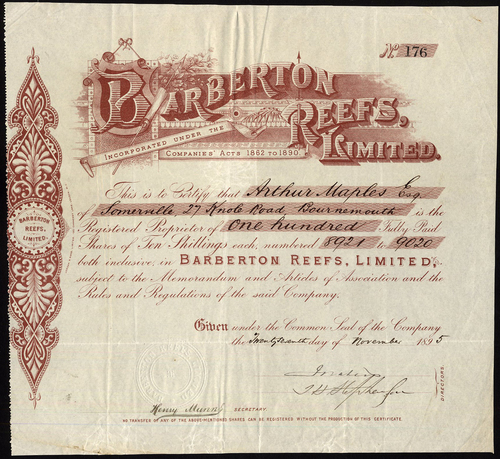 No 176
BARBERTON
REEFS,
LIMITED.
INCORPORATED UNDER THE
COMPANIES' ACTS 1862 TO 1890.
This is to Certify that Arthur Maples Esq
of Somerville 27 Knole Road Bournemouth is the
Registered Proprietor of One hundred Fully Paid
Shares of Ten Shillings each, numbered 8921 to 9020
both inclusive, in BARBERTON REEFS, LIMITED,
subject to the Memorandum and Articles of Association and the
Rules and Regulations of the said Company.
Given under the Common Seal of the Company
the day of November 1895
DIRECTORS.
Henry Munn SECRETARY.
NO TRANSFER OF ANY OF THE ABOVE-MENTIONED SHARES CAN BE REGISTERED WITHOUT THE PRODUCTION OF THIS CERTIFICATE
BARBERTON
REEFS,
LIMITED.